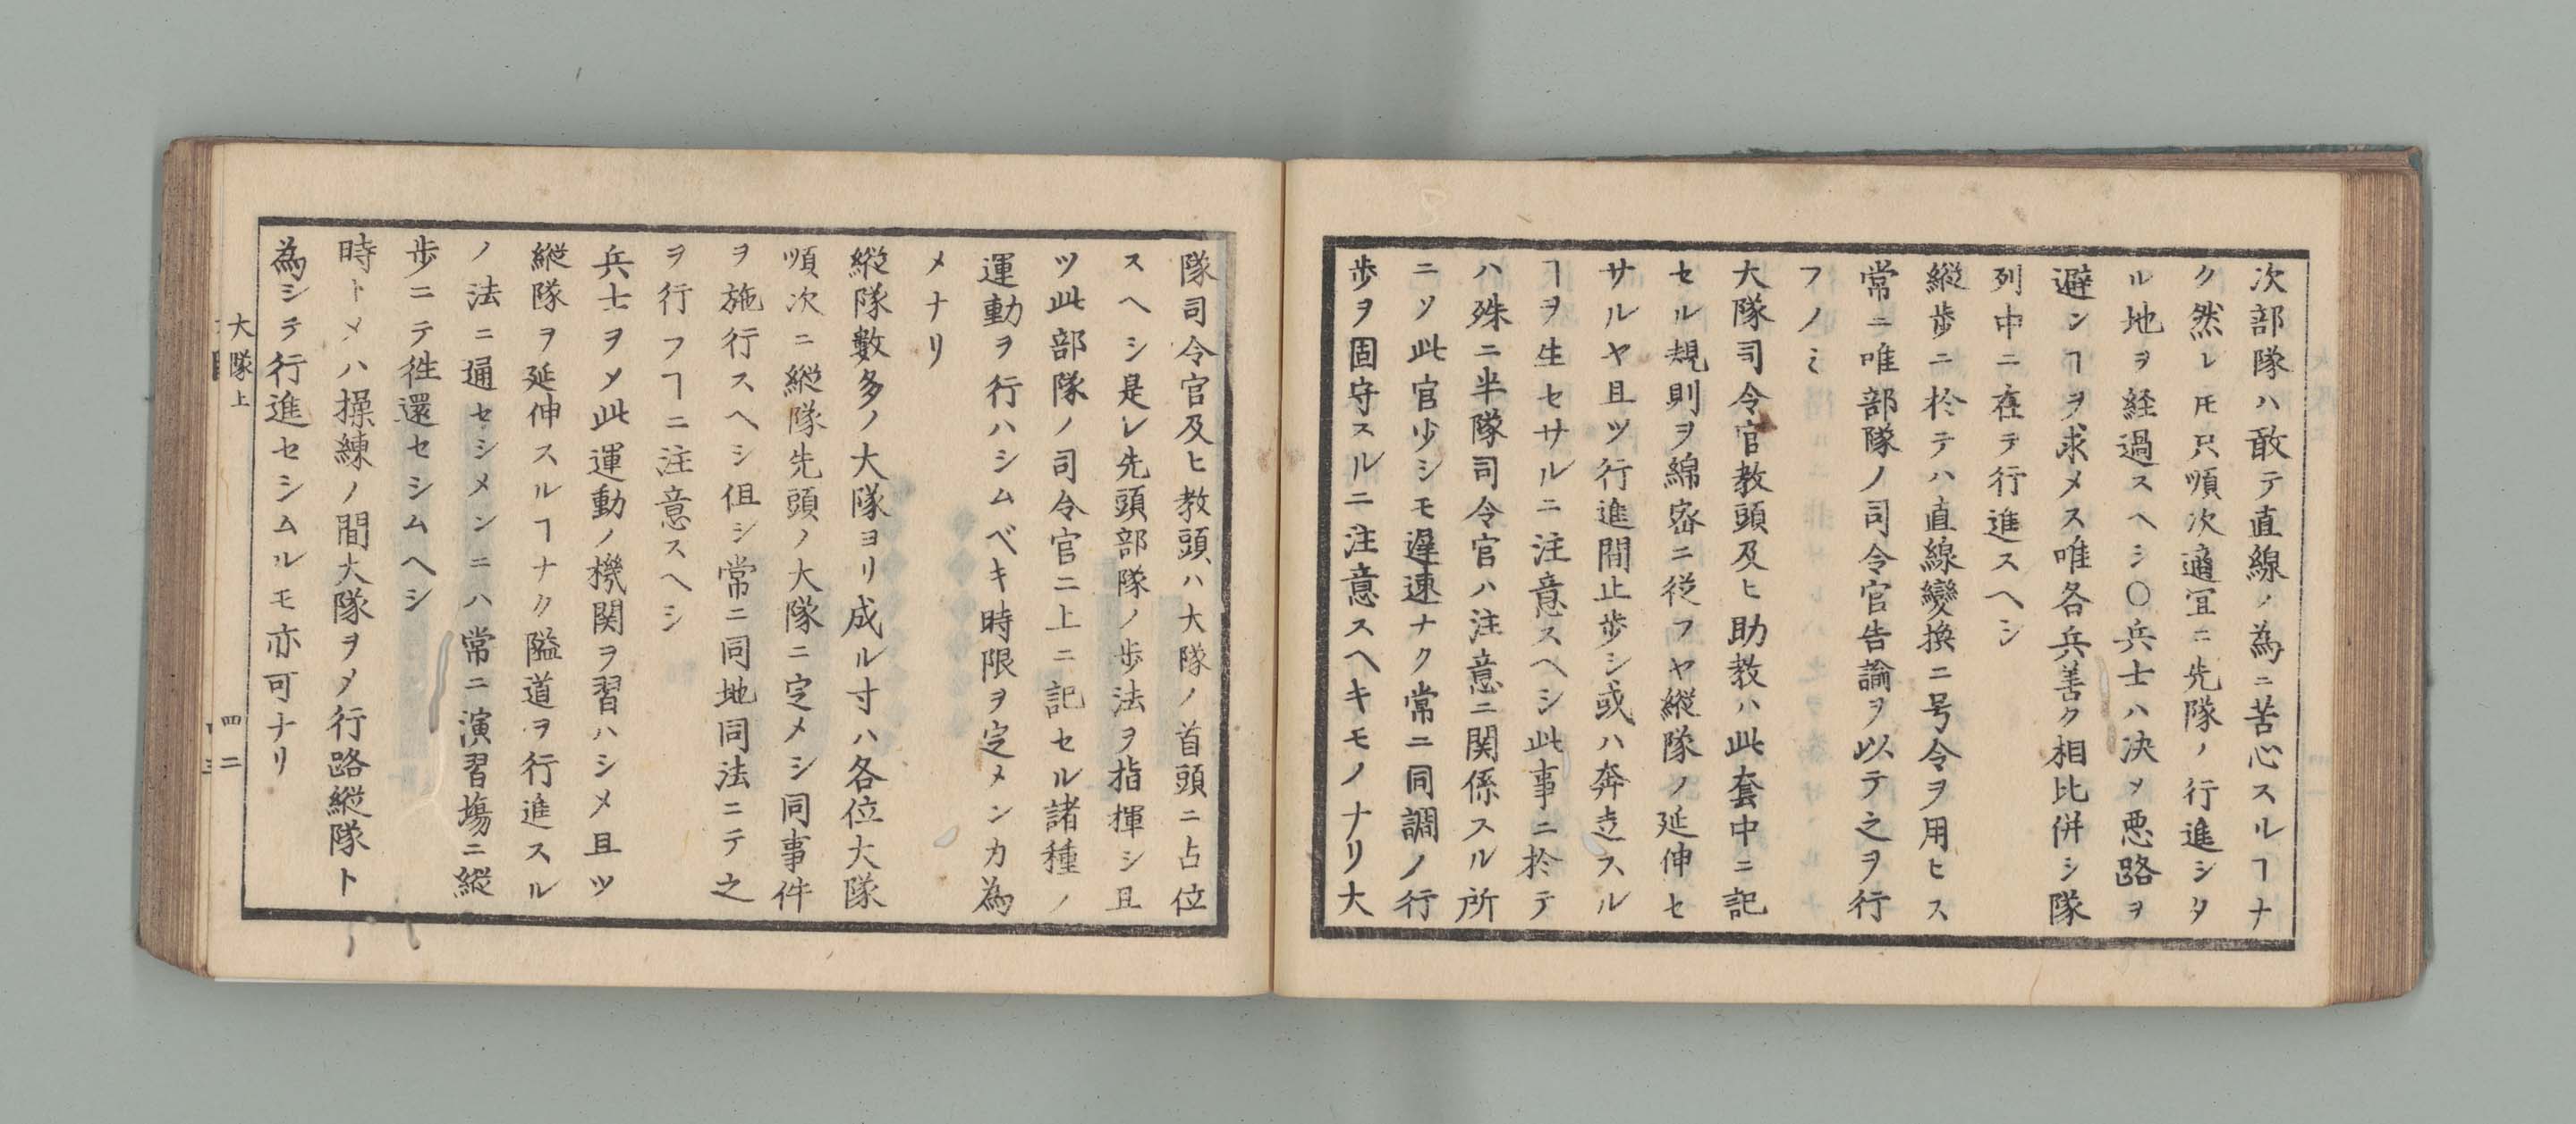 次部隊ハ敢テ直線ノ為ニ苦心スルヿナ
ク然レ𪜈只順次適冝ニ先隊ノ行進シタ
ル地ヲ経過スヘシ〇兵士ハ决〆悪路ヲ
避ンヿヲ求メス唯各兵善ク相比併シ隊
列中ニ在テ行進スヘシ
縦歩ニ於テハ直線變換ニ号令ヲ用ヒス
常ニ唯部隊ノ司令官告諭ヲ以テ之ヲ行
フノミ
大隊司令官教頭及ヒ助教ハ此套中ニ記
セル規則ヲ綿密ニ従フヤ縦隊ノ延伸セ
サルヤ且ツ行進間止歩シ或ハ奔走スル
ヿヲ生セサルニ注意スヘシ此事ニ於テ
ハ殊ニ半隊司令官ハ注意ニ関係スル所
ニソ此官少シモ遅速ナク常ニ同調ノ行
歩ヲ固守スルニ注意スヘキモノナリ大
隊司令官及ヒ教頭ハ大隊ノ首頭ニ占位
スヘシ是レ先頭部隊ノ歩法ヲ指揮シ且
ツ此部隊ノ司令官ニ上ニ記セル諸種ノ
運動ヲ行ハシムベキ時限ヲ定メンカ為
メナリ
縦隊數多ノ大隊ヨリ成ル寸ハ各位大隊
順次ニ縦隊先頭ノ大隊ニ定メシ同事件
ヲ施行スヘシ伹シ常ニ同地同法ニテ之
ヲ行フヿニ注意スヘシ
兵士ヲ〆此運動ノ機関ヲ習ハシメ且ツ
縦隊ヲ延伸スルヿナク隘道ヲ行進スル
ノ法ニ通セシメンニハ常ニ演習塲ニ縦
歩ニテ徃還セシムヘシ
時トメハ操練ノ間大隊ヲ〆行路縦隊ト
為シテ行進セシムルモ亦可ナリ
大隊上
四二